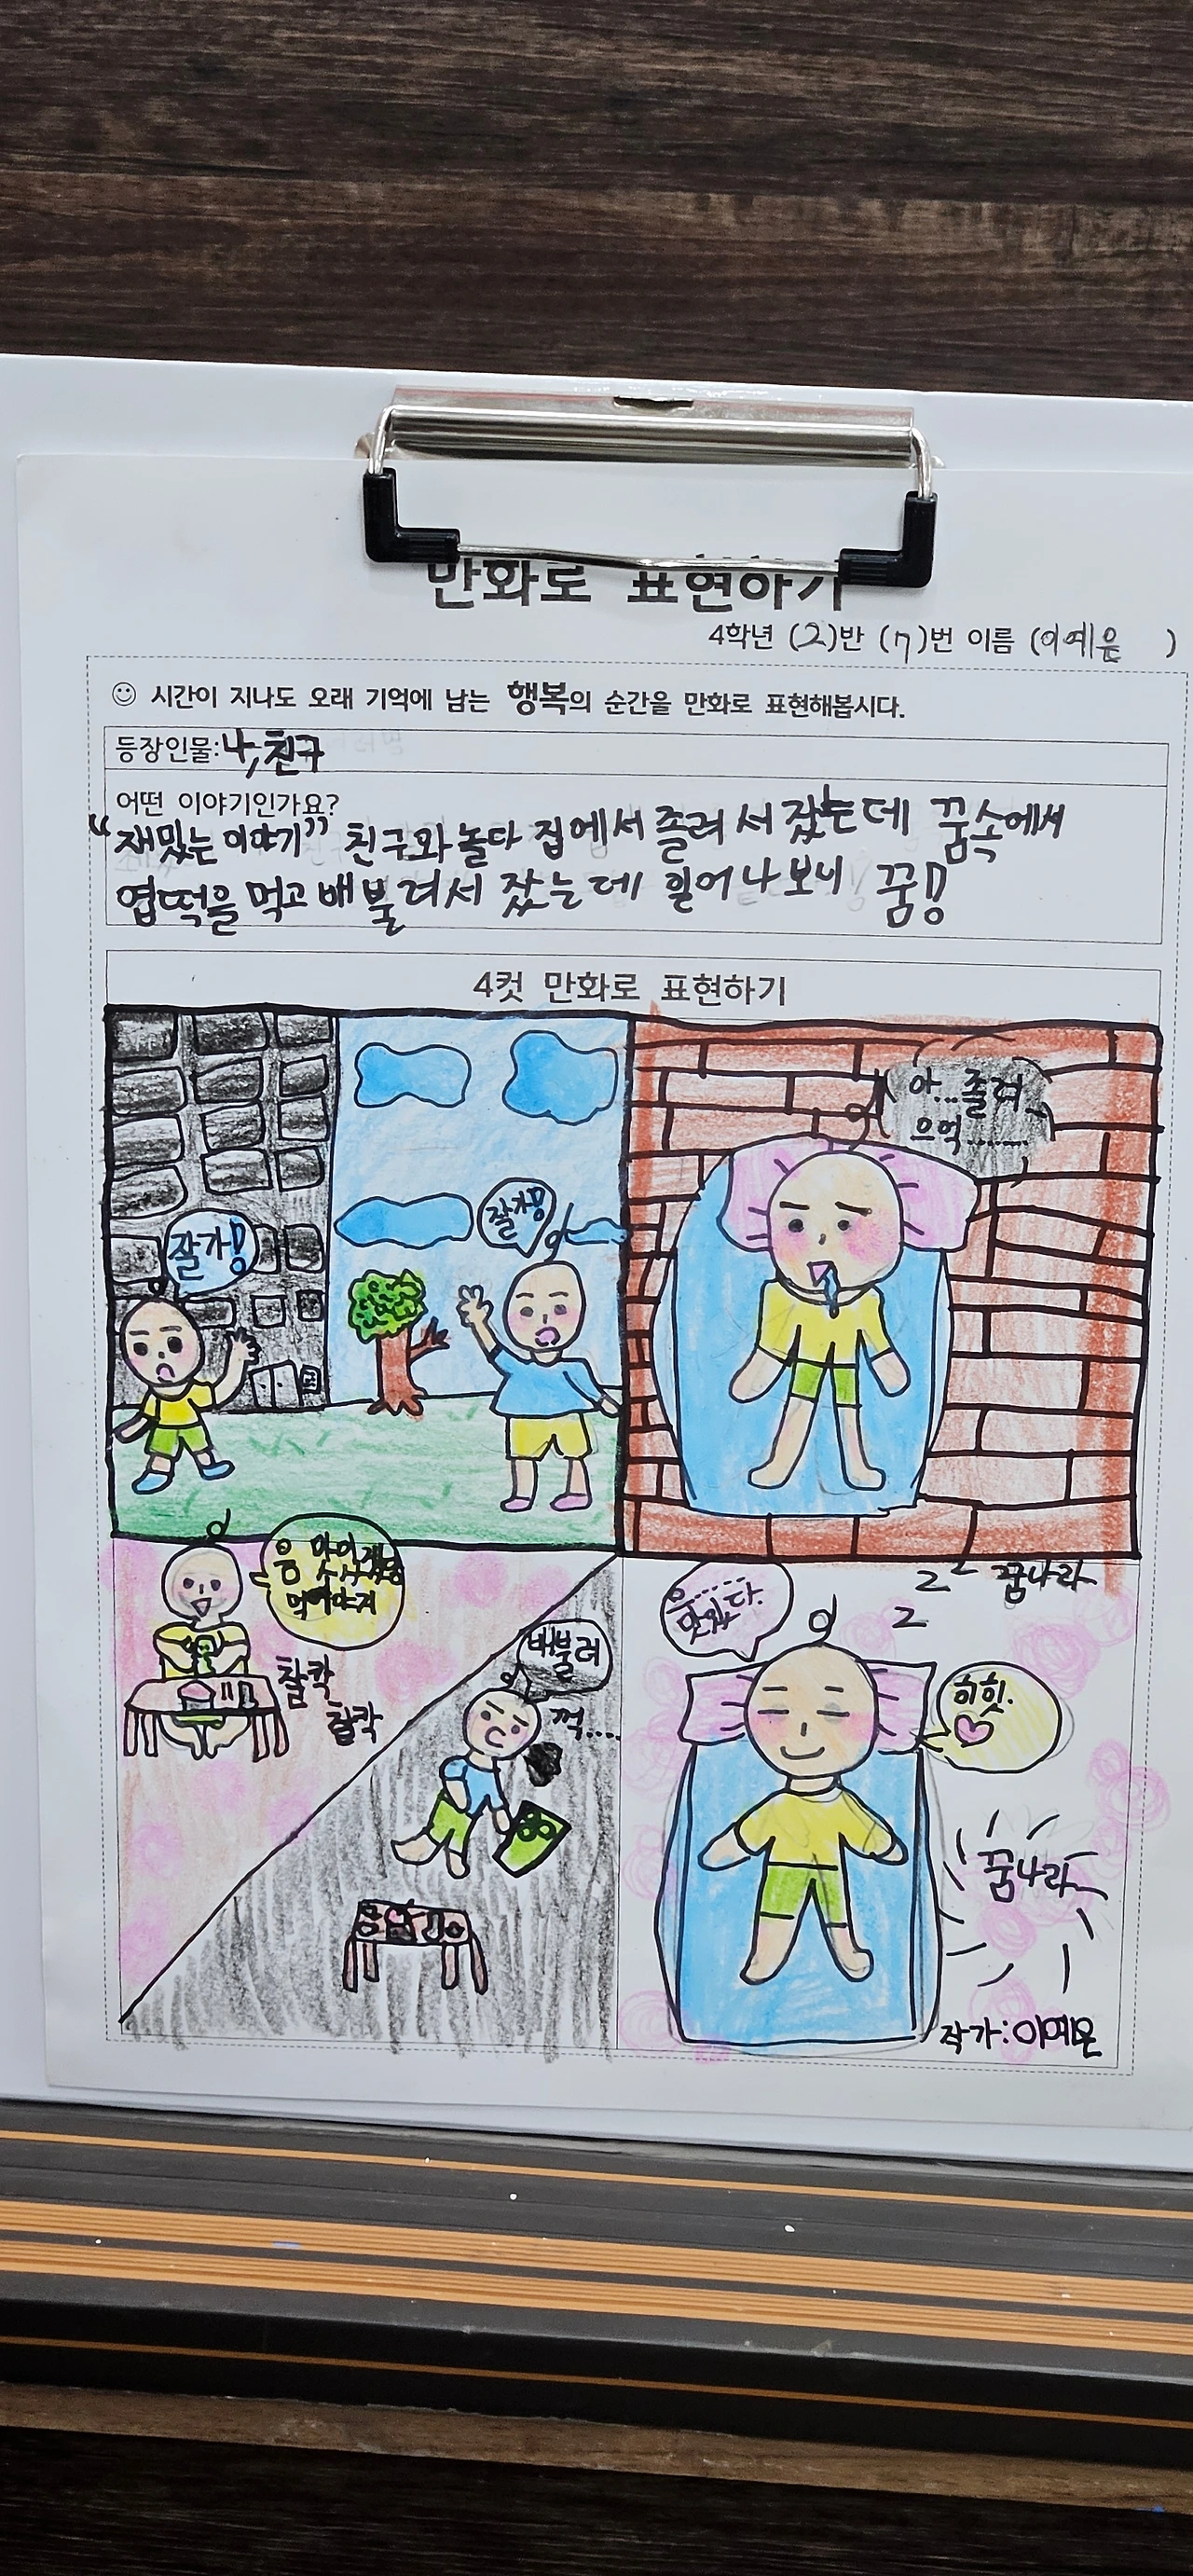 만화로 표현하기
4학년 (2)반 (7)번 이름 (이예은 )
시간이 지나도 오래 기억에 남는 행복의 순간을 만화로 표현해봅시다.
등장인물:나,친구
어떤 이야기인가요?
"재밌는 이야기" 친구와 놀다 집에서 졸려서 잤는데 꿈속에서
엽떡을 먹고 배불려서 잤는데 일어나보니 꿈!!
4컷 만화로 표현하기
잘가!
잘가!!
아...졸려
으억.......
음 맛있겠군
먹어야지
찰칵
찰칵
배불려
꺽....
zz 꿈나라
z
맛있다.
히힛.
꿈나라
작가:이예은